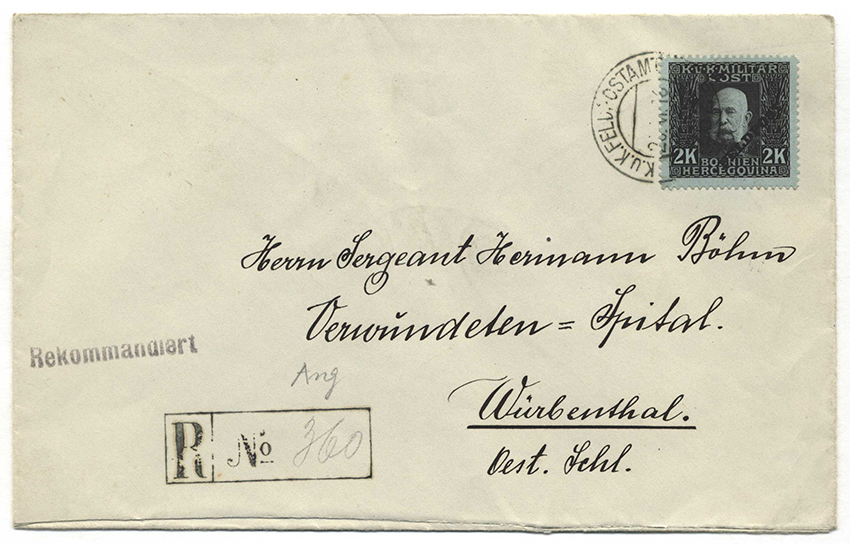 K.u.K. MILITÄR
POST
2K 2K
BOSNIEN
HERCEGOVINA
K.u.K. FELDPOSTAMT
Herrn Sergeant Hermann Böhm
Verwundeten = Spital.
Rekommandiert
Ang
Würbenthal.
R No 360
Oest. Schl.